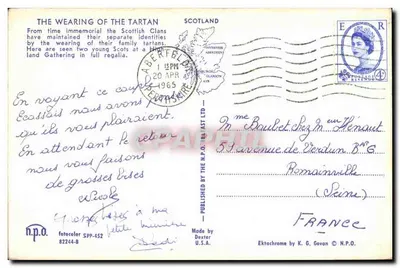 THE WEARING OF THE TARTAN
From time immemorial the Scottish Clans
have maintained their separate identities
by the wearing of their family tartans.
Here are seen two young Scots at a High-
land Gathering in full regalia.
SCOTLAND
E R
ABERFELDY
1 PM
20 APR
1965
PERTHSHIRE
En voyant ce couple
Ecossais nous avons
qu'ils vous plairaient.
En attendant le retour
nous vous faisons
de grosses bises
Nicole
Grosses bises à ma
petite
PUBLISHED BY THE N.P.O. LTD
Mme Boubet chez Meur Hénaut
51 avenue de Verdun
Romainville
(Seine)
FRANCE
n.p.o.
fotocolor SPP-452
82244-B
Made by
Dexter
U.S.A.
Ektachrome by K. G. Sevan © N.P.O.